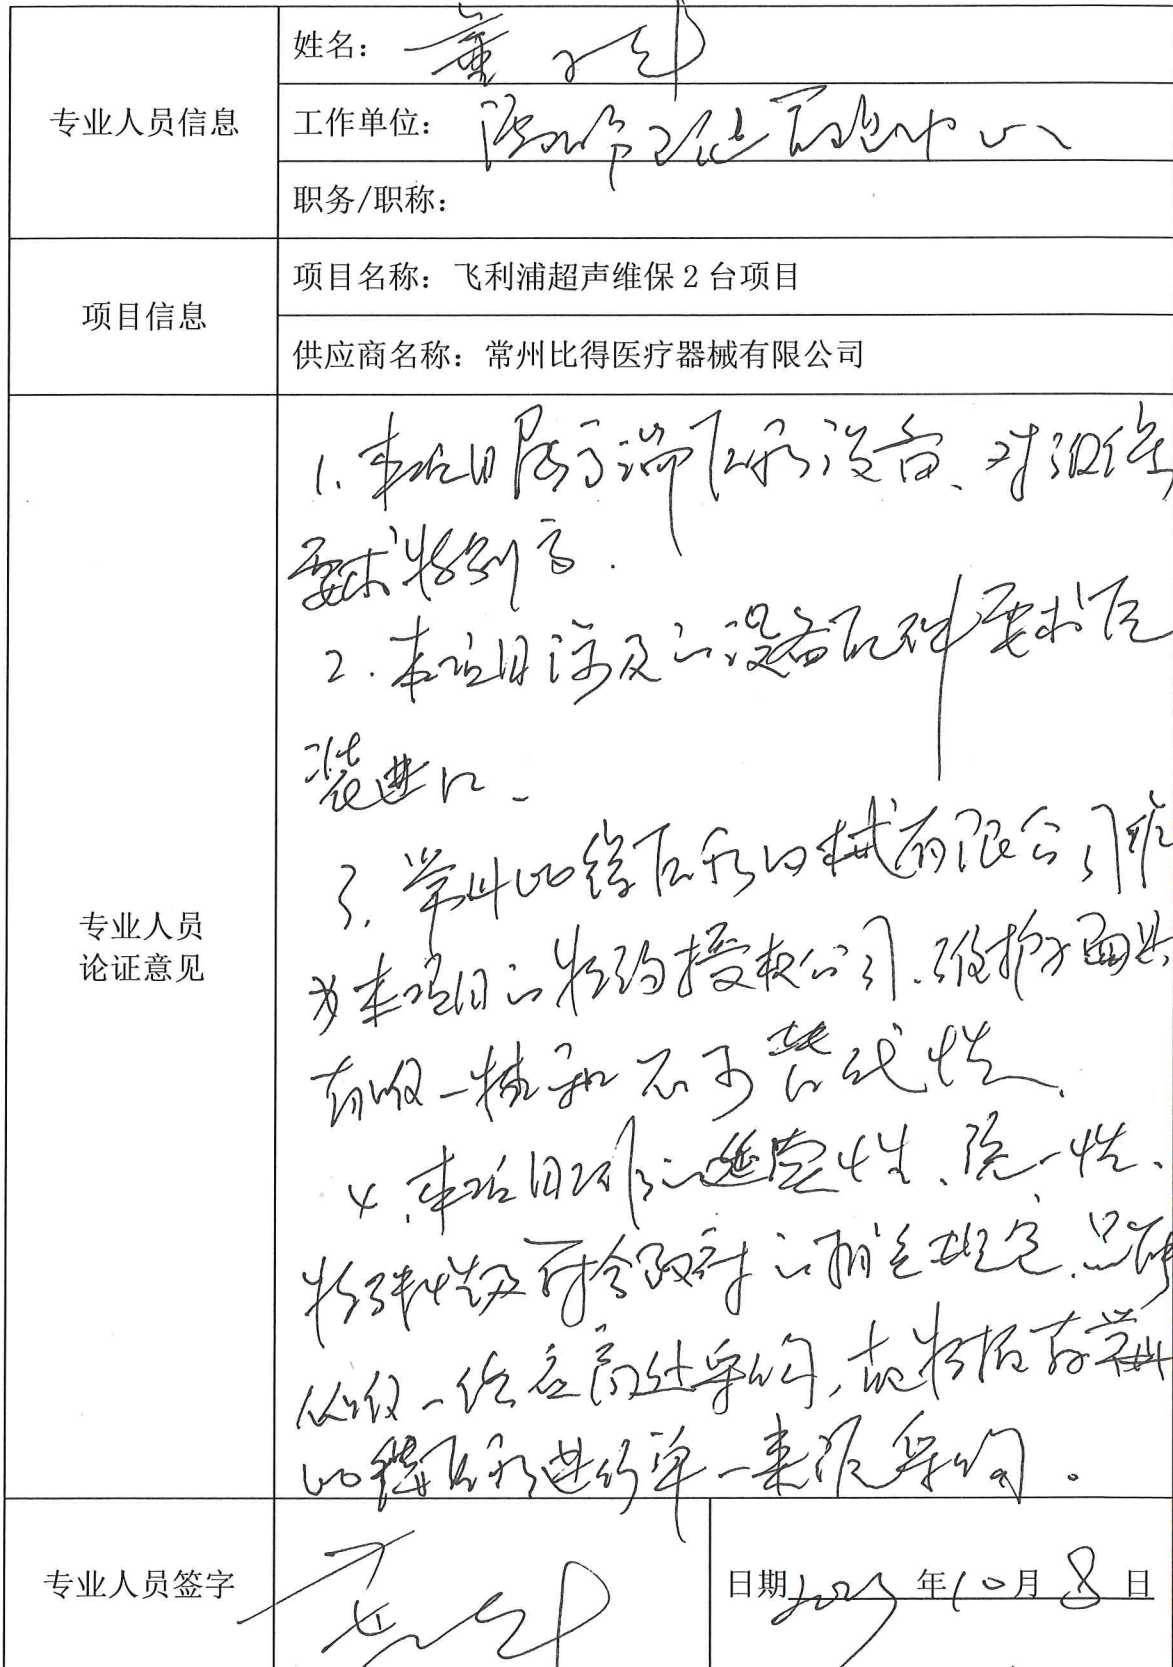 专业人员信息
姓名：
工作单位：中心
职务/职称：
项目信息
项目名称：飞利浦超声维保2台项目
供应商名称：常州比得医疗器械有限公司
专业人员
论证意见
1.本项目属高端医疗设备、对
要求特别高.
2.本项目涉及的设备配件要求原
装进口.
3.常州比得医疗器械有限公司作
为本项目的特约授权公司.维护方面具
有唯一性和不可替代性.
4.本项目的延续性、统一性、
特殊性及符合政府的相关规定.
从唯一供应商处采购,
比得医疗进行单一来源采购。
专业人员签字
日期2023年10月8日